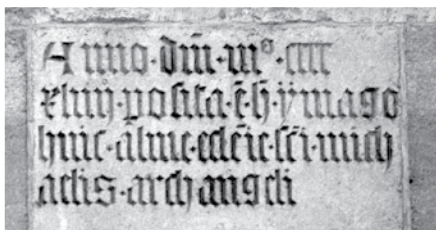 Anno·dm̄·mº·cccc
xliiij·posita·ē·h·ÿmago
huic·alme·eccl̄ie·sc̄i·mich
aelis·archangeli